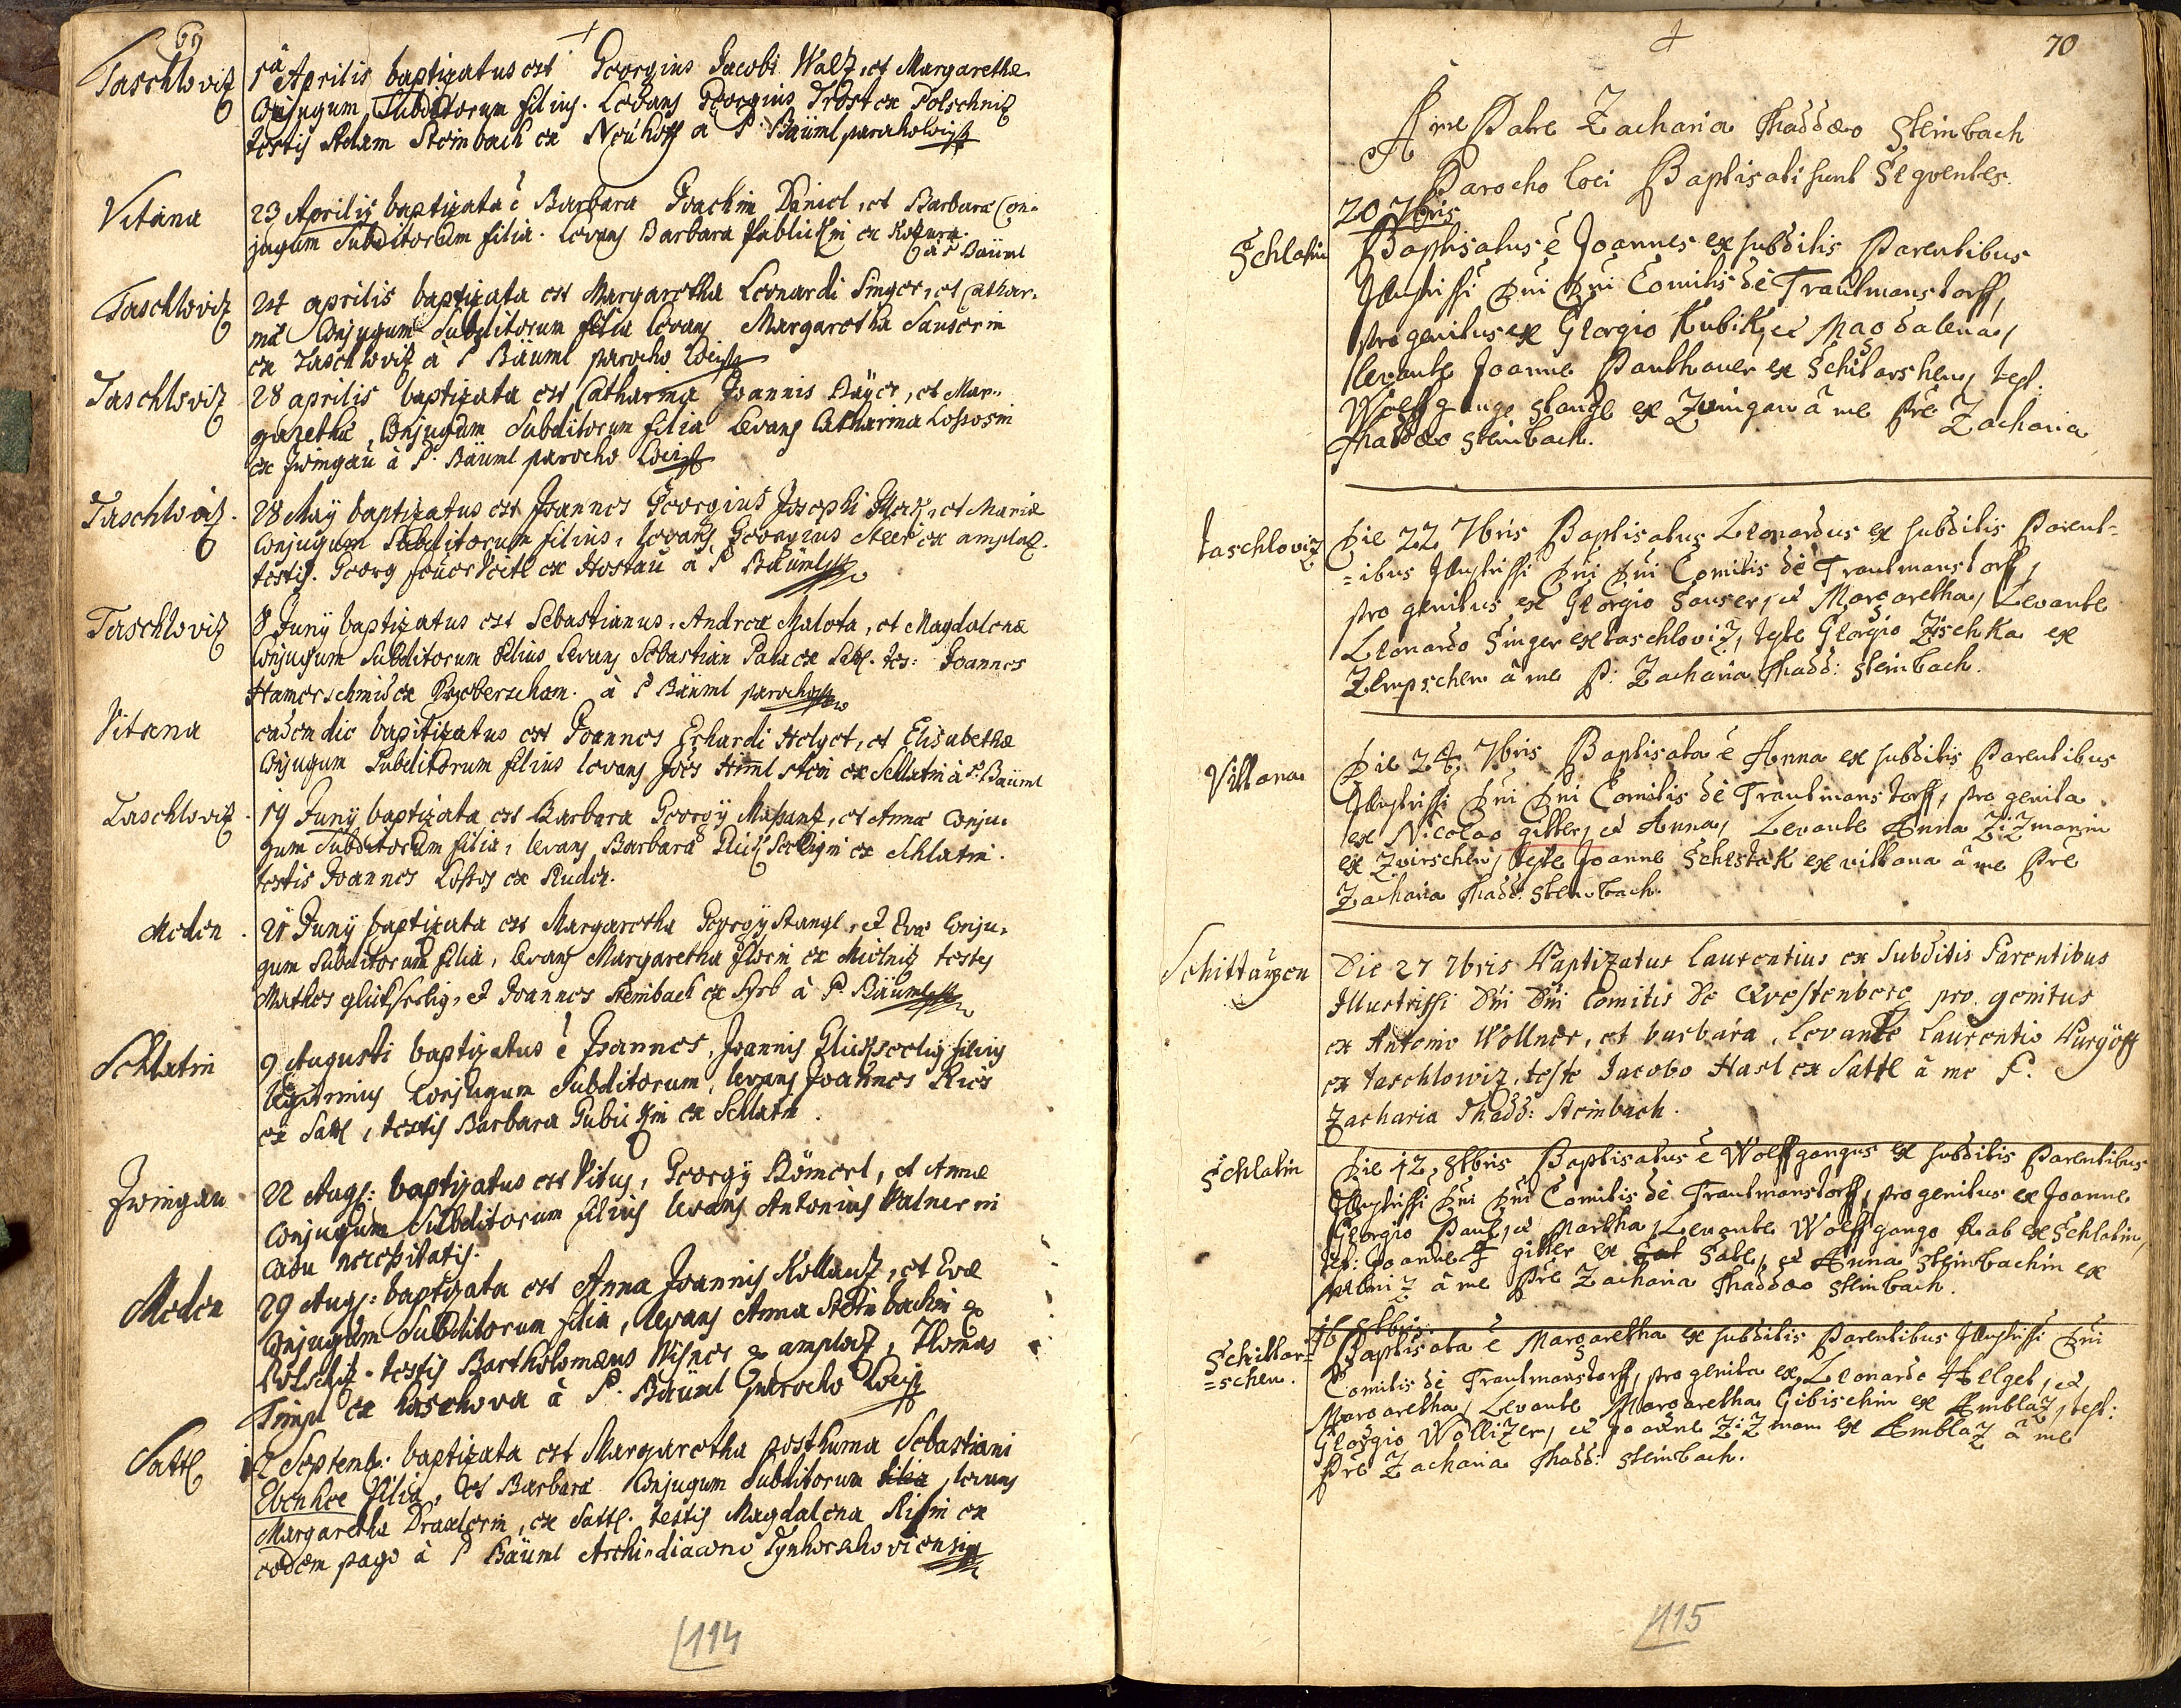 69
Taschloviz 1ª Aprilis baptizatus est Georgius Jacobi Walz, et Margarethæ
Conjugum Subditorum filius. Levans Georgius Trost ex Polschniz
testis Adam Steinbach ex Neuhoff a P. Bäuml parocho
Vitana 23 Aprilis baptizata ê Barbara Joachim Daniel, et Barbaræ Con-
jugum Subditorum filia. Levans Barbara ex
à P Bäuml
Taschloviz 24 aprilis baptizata est Margaretha Leonardi Singer, et Cathar-
inæ Conjugum Subditorum filia levans Margaretha Sauserin
ex Taschloviz a P Bäuml parocho
Taschloviz 28 aprilis baptizata est Catharina Joannis Bäyer, et Mar-
garethæ, Conjugum Subditorum filia Levans Catharina
ex Zwingau à P. Bäuml parocho
Taschloviz. 28 Maÿ baptizatus est Joannes Georgius Josephi, et Mariæ
Conjugum Subditorum filius, levans Georgius ex amplaz.
testis. Georg ex Hostau à P Bäuml
Taschloviz 8 Junÿ baptizatus est Sebastianus, Andreæ Malota, et Magdalenæ
Conjugum Subditorum filius levans Sebastian Pala ex Satl. tes: Joannes
Hamerschmid ex à P Bäuml parocho
Vitana eadem die baptizatus est Joannes Erhardi Helget, et Elisabethæ
Conjugum Subditorum filius levans Joës ex Schlatin à P. Bäuml
Taschloviz. 19 Junÿ baptizata est Barbara Georgÿ, et Annæ Conju-
gum Subditorum filia, levans Barbara ex Schlatin.
testis Joannes ex
Meden. 21 Junÿ baptizata est Margaretha Georgÿ Stangl, et Evæ Conju-
gum Subditorum filia, levans Margaretha ex Mielniz testes
Mathes glückseelig, et Joannes Steinbach ex à P. Bäuml
Schlatin 9 Augusti baptizatus ê Joannes, Joannis Glückseelig filius
legitimus Conjugum Subditorum, levans Joannes
ex Satl, testis Barbara ex Schlatin.
Zwingau 22 Augs: baptizatus est Vitus, Georgÿ Römerl, et Annæ
Conjugum Subditorum filius levans Antonius in
casu necessitatis.
Meden 29 Augs: baptizata est Anna Joannis Kollautz, et Evæ
Conjugum Subditorum filia, levans Anna Steinbachin ex
testis Bartholomæus ex amplaz, Thomas
ex à P. Bäuml parocho
Sattl 2 Septemb: baptizata est Margaretha posthuma Sebastiani
Ebenhoe filia, et Barbaræ Conjugum Subditorum filia, levans
Margaretha Draxlerin, ex Sattl. testis Magdalena ex
eodem pago à P Bäuml Archi-diacono
114
70
A me Patre Zacharia Thaddæo Steinbach
Parocho loci Baptisati sunt Seqventes.
20 7bris
Schlatin Baptisatus ê Joannes ex subditis Parentibus
Illustrissi Dni Dni Comitis de Trautmanstorff,
pro genitus ex Georgio Kubik, et Magdalena,
levante Joanne Panthauer ex Schitarshen, test.
Wolffgango Stangl ex Zwingau â me Pre Zacharia
Thaddæo Steinbach.
Taschloviz Die 22 7bris Baptisatus Leonardus ex subditis Parent-
=ibus Illustrissi Dni Dni Comitis de Trautmanstorff,
pro genitus ex Georgio Sauser, et Margaretha, Levante
Leonardo Singer ex taschloviz, teste Georgio Zischka ex
Zempschen â me P: Zacharia Thadd: Steinbach.
Vittana Die 24 7bris Baptisata ê Anna ex subditis Parentibus
Illustrissi Dni Dni Comitis de Trautmanstorff, pro genita
ex Nicolao gitter, et Anna, Levante Anna Zizmanin
ex Zwirschen, teste Joanne Schestak ex vittana â me Pre
Zacharia Thadd: Steinbach.
Schittarzen Die 27 7bris Baptizatus Laurentius ex Subditis Parentibus
Illustrissi Dni Dni Comitis De Qvestenberg pro genitus
ex Antonio Wöllner, et barbara, levante Laurentio
ex taschlowiz, teste Jacobo Hasl ex Sattl â me P.
Zacharia Thadd: Steinbach.
Schlatin Die 12, 8bris Baptisatus ê Wolffgangus ex subditis Parentibus
Illustrissi Dni Dni Comitis de Trautmanstorff, pro genitus ex Joanne
Georgio Paul, et Martha, Levante Wolffgango Rab ex Schlatin,
test: Joanne gitter ex Satl, et Anna Steinbachin ex
â me Pre Zacharia Thaddæo Steinbach.
16 8bris
Schittar=
=schen. Baptisata ê Margaretha ex subditis Parentibus Illustrissi Dni
Comitis de Trautmanstorff, pro genita ex Leonardo Helget, et
Margaretha, Levante Margaretha Gibischin ex Amblaz, test:
Georgio Wollizer, et Joanne Zizman ex Amblaz â me
Pre Zacharia Thadd: Steinbach.
115